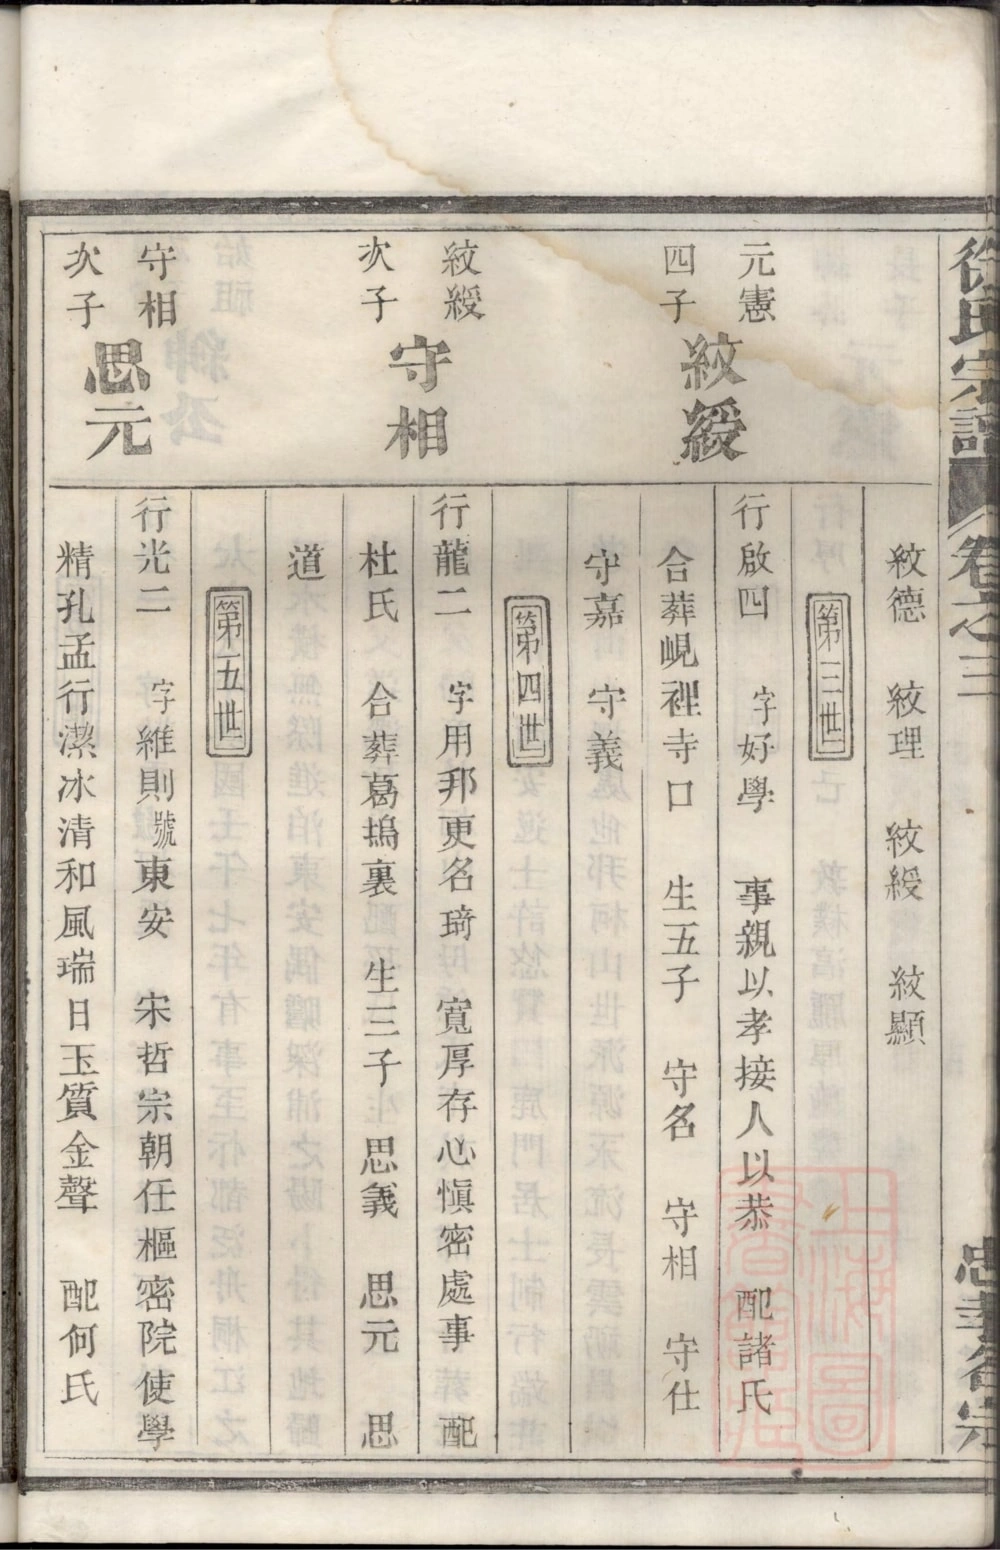 徐氏宗譜
卷之三
紋德 紋理 紋綬 紋顯
第三世
元憲
四子
紋綬
行啟四 字好學 事親以孝接人以恭 配諸氏
合葬峴裡寺口 生五子 守名 守相 守仕
守嘉 守義
第四世
紋綬
次子
守相
行龍二 字用邦更名琦 寬厚存心慎密處事 配
杜氏 合葬葛塢裏 生三子 思義 思元 思
道
第五世
守相
次子
思元
行光二 字維則號東安 宋哲宗朝任樞密院使學
精孔孟行潔冰清和風瑞日玉質金聲 配何氏